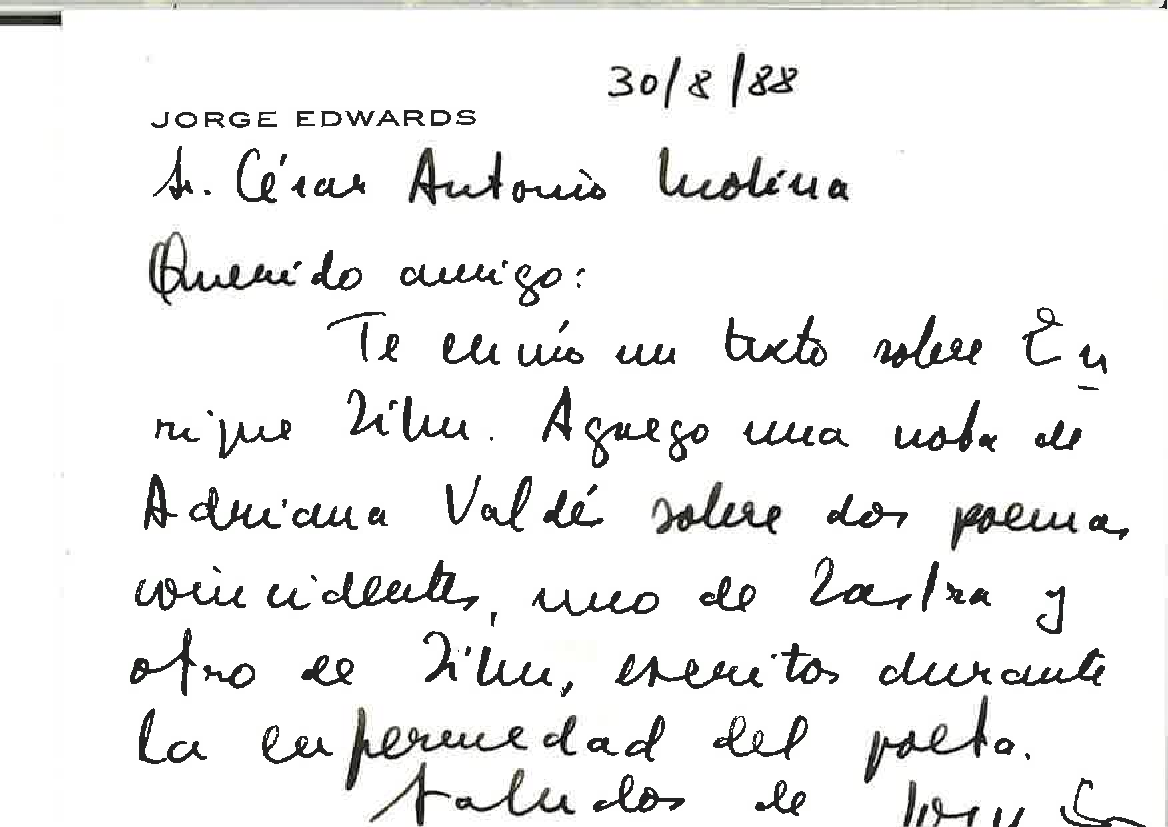 30/8/88
JORGE EDWARDS
Sr. César Antonio Molina
Querido amigo:
Te envío un texto sobre En
rique Lihn. Agrego una nota de
Adriana Valdés sobre dos poemas
coincidentes, uno de Lastra y
otro de Lihn, escritos durante
la enfermedad del poeta.
Saludos de Jorge